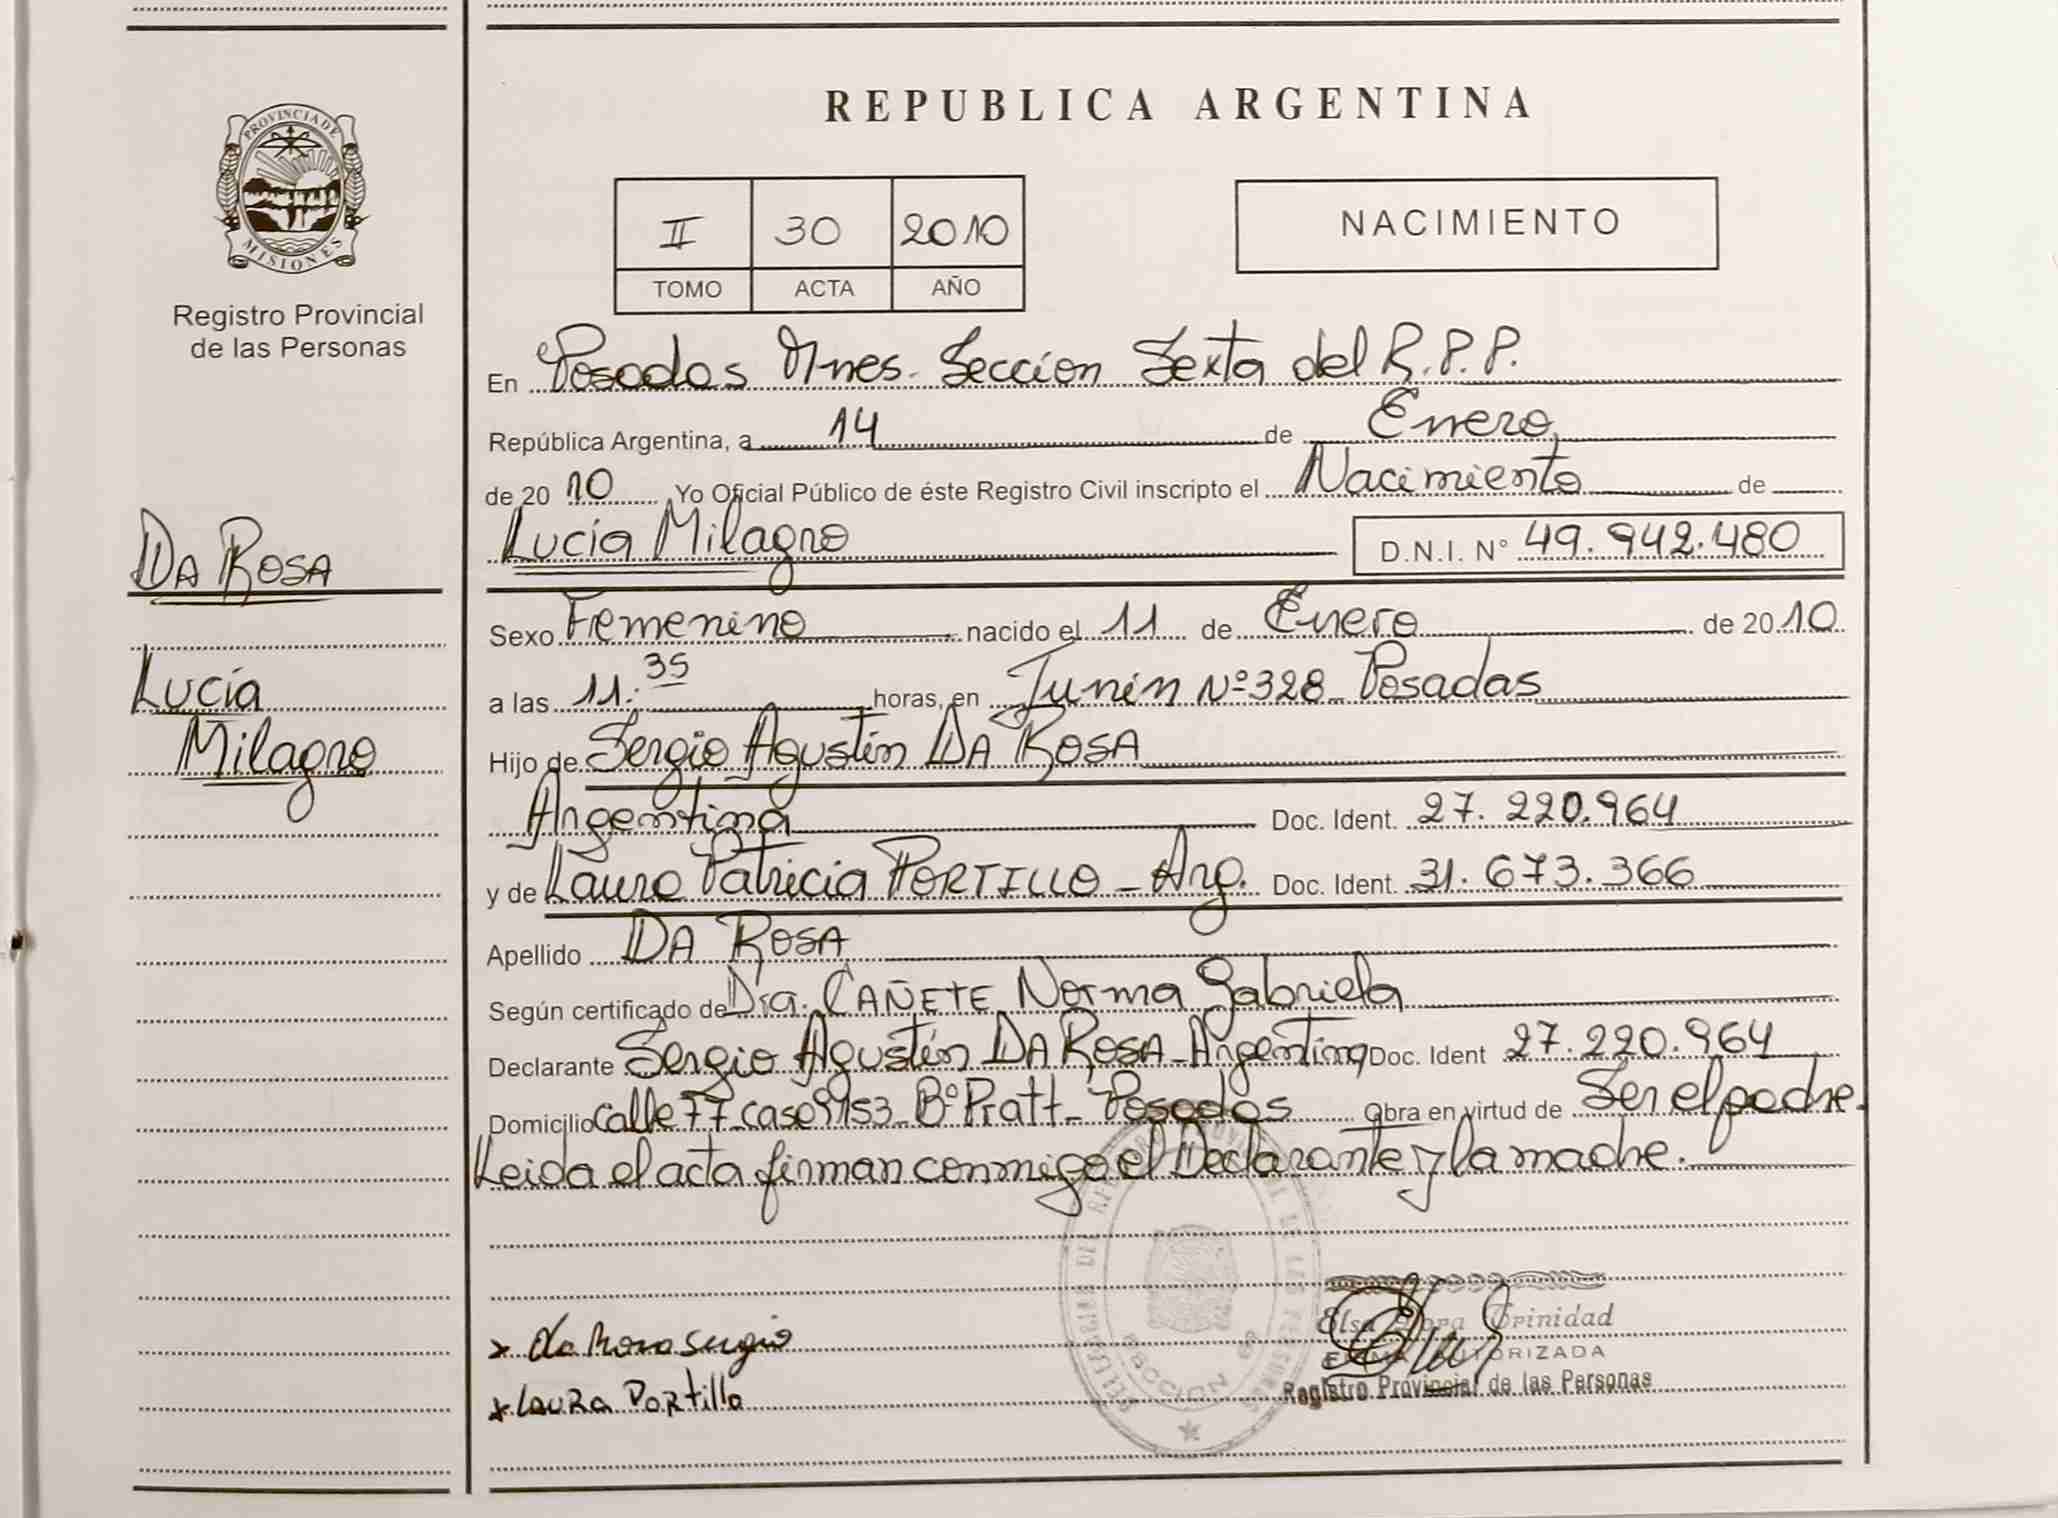 PROVINCIA DE
MISIONES
Registro Provincial
de las Personas
DA ROSA
Lucía
Milagro
REPUBLICA ARGENTINA
II 30 2010
TOMO ACTA AÑO
NACIMIENTO
En Posadas Mnes. Sección Sexta del R.P.P.
República Argentina, a 14 de Enero
de 2010 Yo Oficial Público de éste Registro Civil inscripto el Nacimiento de
Lucía Milagro D.N.I. N° 49.942.480
Sexo Femenino nacido el 11 de Enero de 2010
a las 11:35 horas, en Junín Nº 328 Posadas
Hijo de Sergio Agustín DA ROSA
Argentina Doc. Ident. 27.220.964
y de Laura Patricia PORTILLO - Arg. Doc. Ident. 31.673.366
Apellido DA ROSA
Según certificado de Dra. CAÑETE Norma Gabriela
Declarante Sergio Agustín DA ROSA - Argentina Doc. Ident 27.220.964
Domicilio calle 77 casa 9153 - Bº Pratt - Posadas Obra en virtud de Ser el padre.
Leida el acta firman conmigo el Declarante y la madre.
x da Rosa sergio
x Laura Portillo
Elsa Trinidad
FIRMA AUTORIZADA
Registro Provincial de las Personas